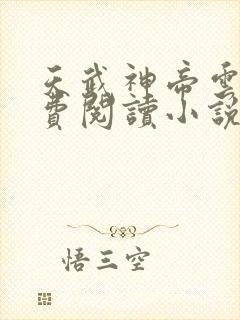 天武神帝雲
費閱讀小說
悟三空